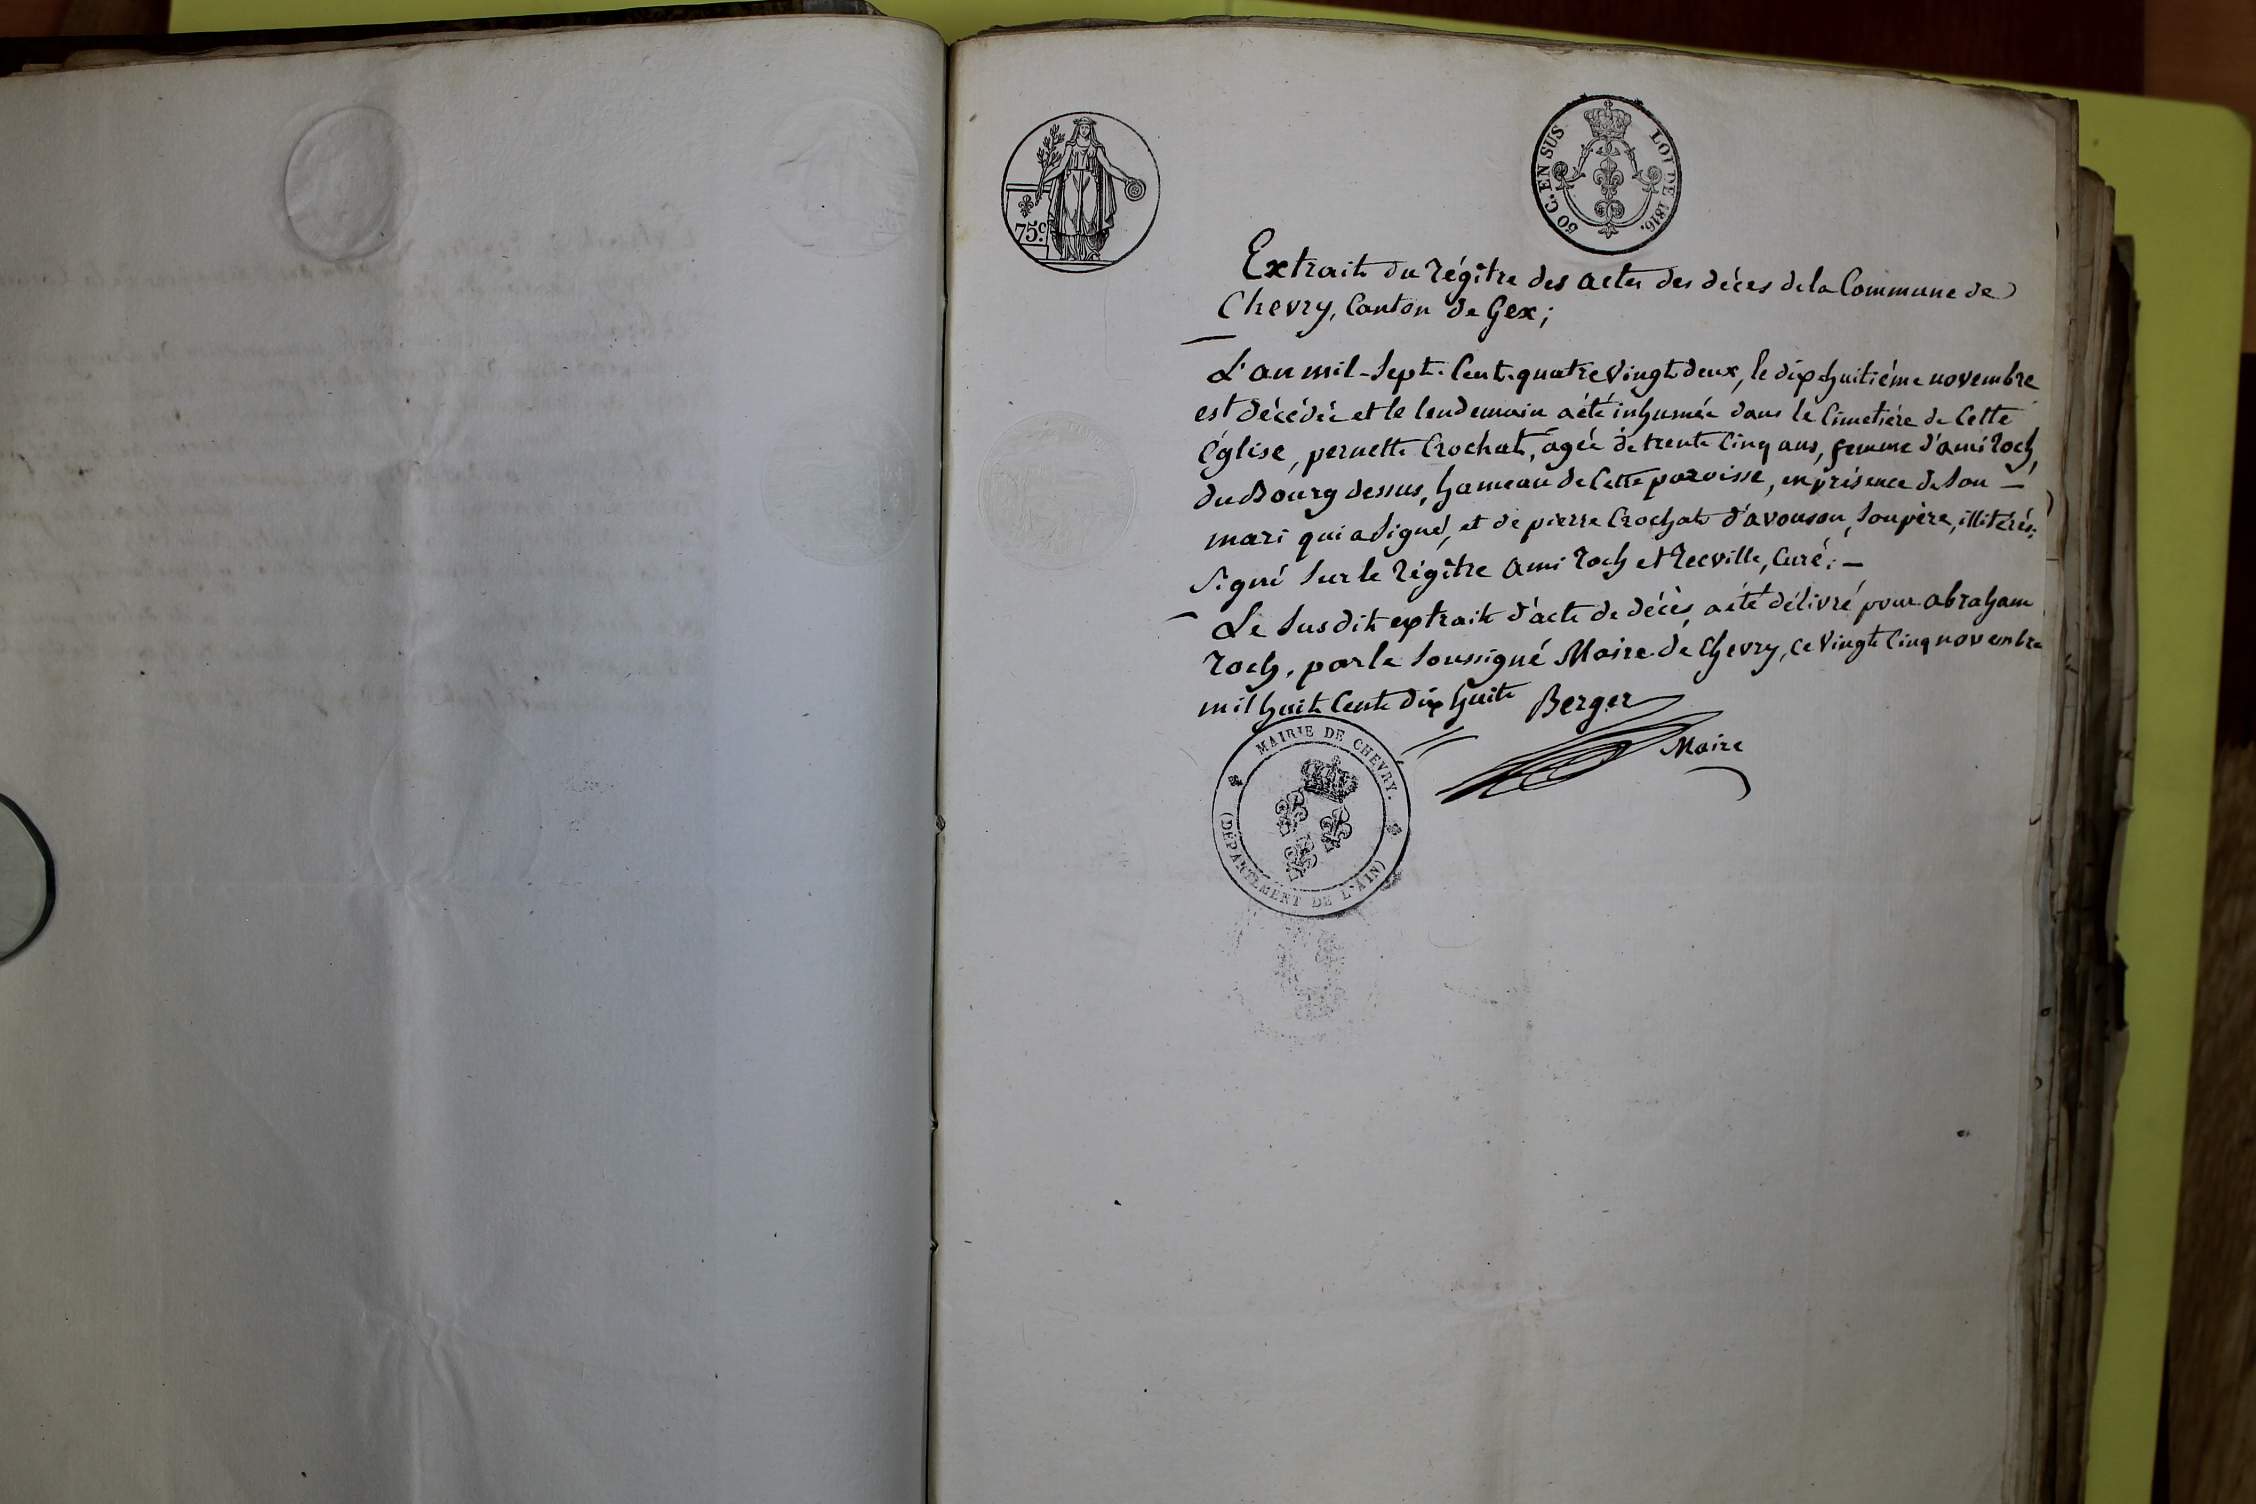 75.c
50 C. EN SUS LOI DE 1816.
Extrait du régître des actes des décès de la Commune de
Chevry, Canton de Gex;
L'an mil-Sept-Cent-quatre Vingt deux, le dix huitiéme novembre
est décédée et le lendemain a été inhumée dans le Cimetiére de Cette
église, pernette Crochat, agée de trente Cinq ans, femme d'ami Roch,
du Bourg dessus, hameau de Cette paroisse, en présence de Son —
mari qui a Signé, et de pierre Crochat d'avouson, Son père, illitérés;
Signé Sur le régître ami Roch et Recville, Curé; —
Le Susdit extrait d'acte de décès, a été délivré pour abraham
Roch, par le Soussigné Maire de Chevry, Ce Vingt Cinq novembre
mil huit Cent dix huit Berger
Maire
MAIRIE DE CHEVRY.
(DÉPARTEMENT DE L'AIN)